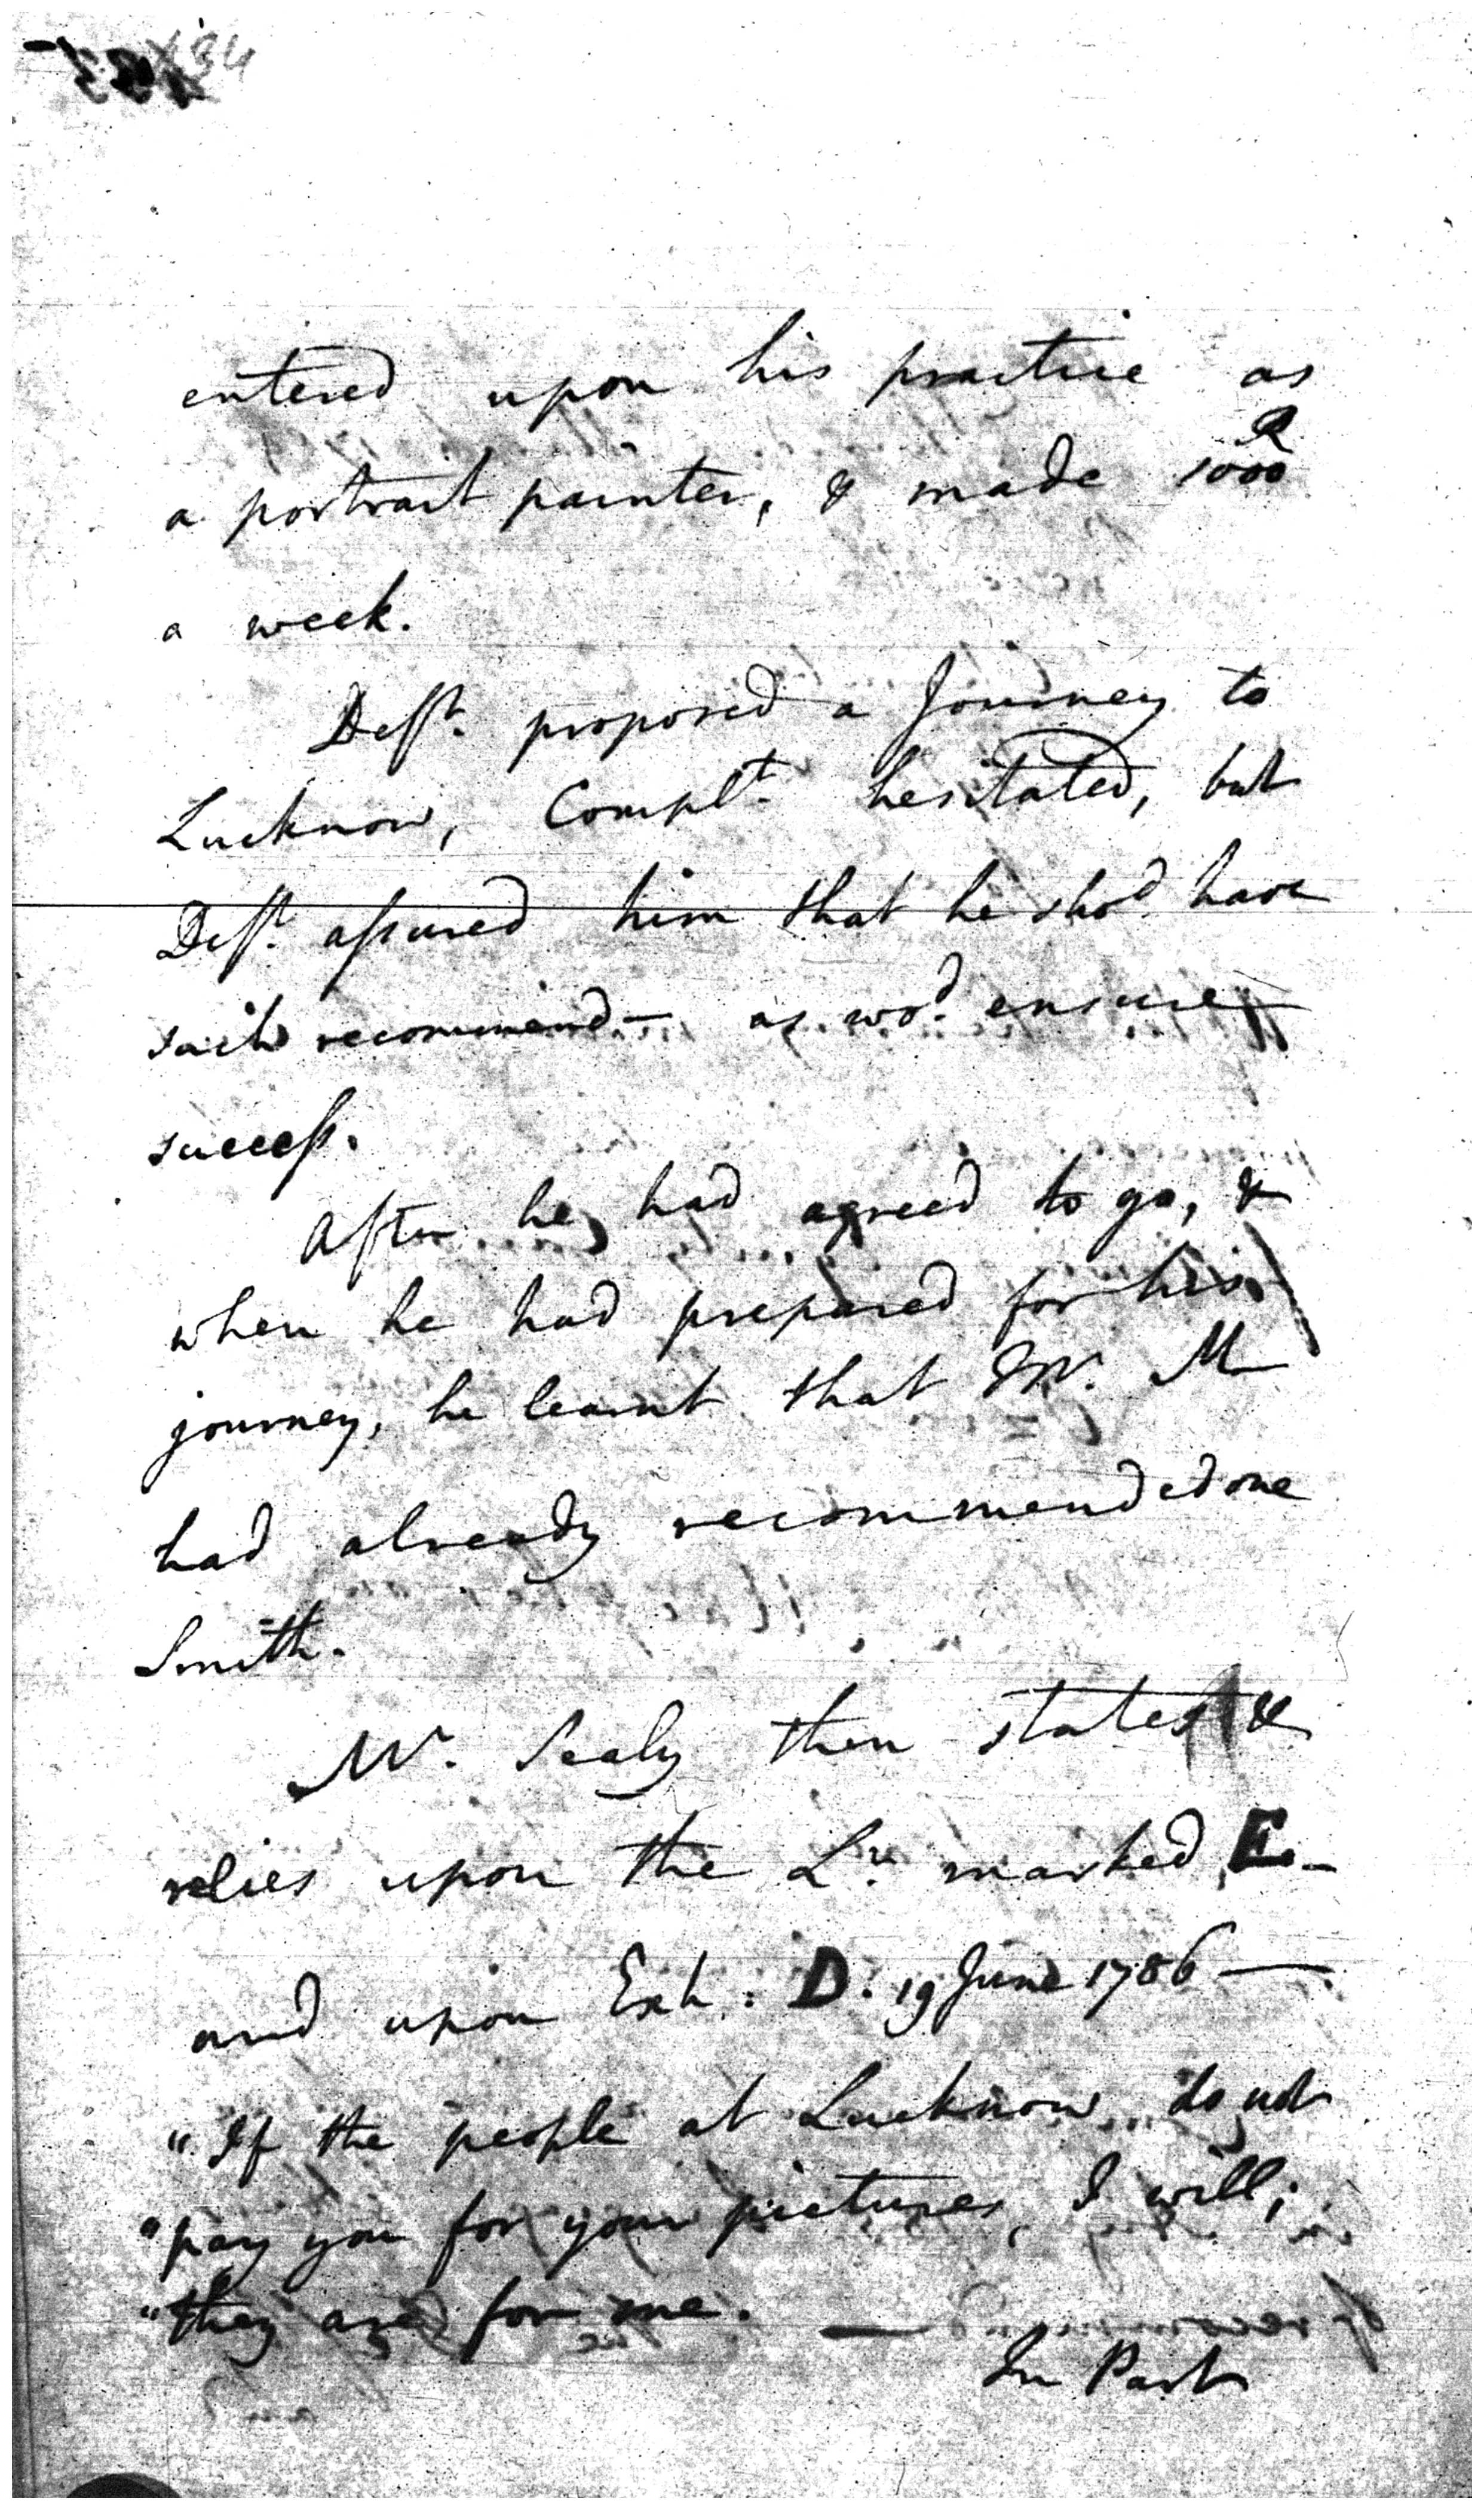 34
entered upon his practice as
a portrait painter, & made 1000 R
a week.
Deft. proposed a Journey to
Lucknow, Complt. hesitated, but
Deft. assured him that he shod. have
such recommend— as wod. ensure
success.
After he had agreed to go, &
when he had prepared for his
journey, he learnt that Mr. M
had already recommended one
Smith.
Mr. Sealy then states &
relies upon the Lr. marked E—
and upon Exh: D. 19 June 1786—
"If the people at Lucknow do not
"pay you for your pictures, I will;
"they are for me. —
In Part